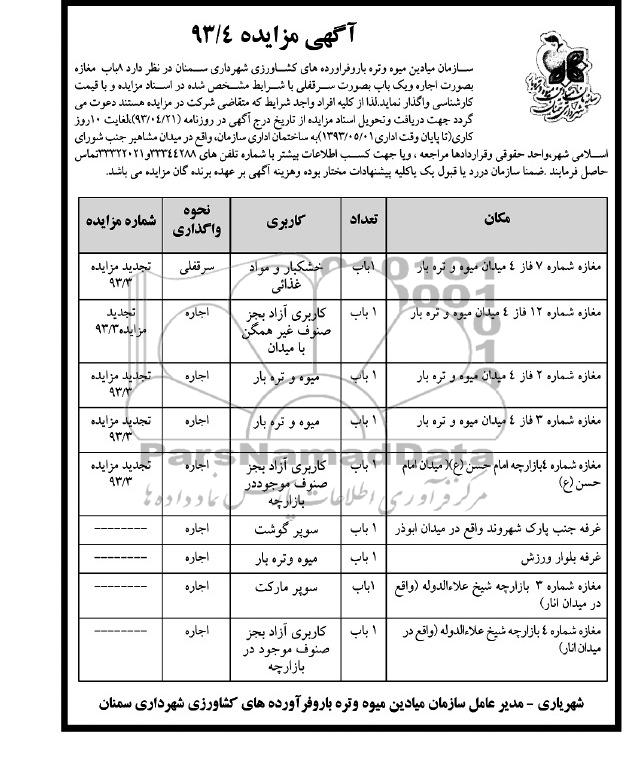 آگهی مزایده ۹۳/۴
سازمان میادین میوه وتره باروفراورده های کشاورزی شهرداری سمنان در نظر دارد ۸باب مغازه
بصورت اجاره ویک باب بصورت سرقفلی با شرایط مشخص شده در اسناد مزایده و با قیمت
کارشناسی واگذار نماید.لذا از کلیه افراد واجد شرایط که متقاضی شرکت در مزایده هستند دعوت می
گردد جهت دریافت وتحویل اسناد مزایده از تاریخ درج آگهی در روزنامه (۹۳/۰۴/۲۱)،لغایت ۱۰روز
کاری(تا پایان وقت اداری۱۳۹۳/۰۵/۰۱)به ساختمان اداری سازمان، واقع در میدان مشاهیر جنب شورای
اسلامی شهر،واحد حقوقی وقراردادها مراجعه ، ویا جهت کسب اطلاعات بیشتر با شماره تلفن های ۳۳۳۴۴۲۸۸و۳۳۳۲۲۰۲۱تماس
حاصل فرمایند .ضمنا سازمان دررد یا قبول یک یاکلیه پیشنهادات مختار بوده وهزینه آگهی بر عهده برنده گان مزایده می باشد.
مکان تعداد کاربری نحوه واگذاری شماره مزایده
مغازه شماره ۷ فاز ۴ میدان میوه و تره بار ۱باب خشکبار و مواد غذائی سرقفلی تجدید مزایده ۹۳/۳
مغازه شماره ۱۲ فاز ۴ میدان میوه و تره بار ۱ باب کاربری آزاد بجز صنوف غیر همگن با میدان اجاره تجدید مزایده۹۳/۳
مغازه شماره ۲ فاز ۴ میدان میوه و تره بار ۱ باب میوه و تره بار اجاره تجدید مزایده ۹۳/۳
مغازه شماره ۳ فاز ۴ میدان میوه و تره بار ۱ باب میوه و تره بار اجاره تجدید مزایده ۹۳/۳
مغازه شماره ۴بازارچه امام حسن (ع)( میدان امام حسن (ع) ۱ باب کاربری آزاد بجز صنوف موجوددر بازارچه اجاره تجدید مزایده ۹۳/۳
غرفه جنب پارک شهروند واقع در میدان ابوذر ۱ باب سوپر گوشت اجاره --------
غرفه بلوار ورزش ۱ باب میوه وتره بار اجاره --------
مغازه شماره ۳ بازارچه شیخ علاءالدوله (واقع در میدان انار) ۱باب سوپر مارکت اجاره --------
مغازه شماره ۴ بازارچه شیخ علاءالدوله (واقع در میدان انار) ۱ باب کاربری آزاد بجز صنوف موجود در بازارچه اجاره --------
شهریاری - مدیر عامل سازمان میادین میوه وتره باروفرآورده های کشاورزی شهرداری سمنان
ParsNamadData
مرکز فرآوری اطلاعات پارس نماد داده ها